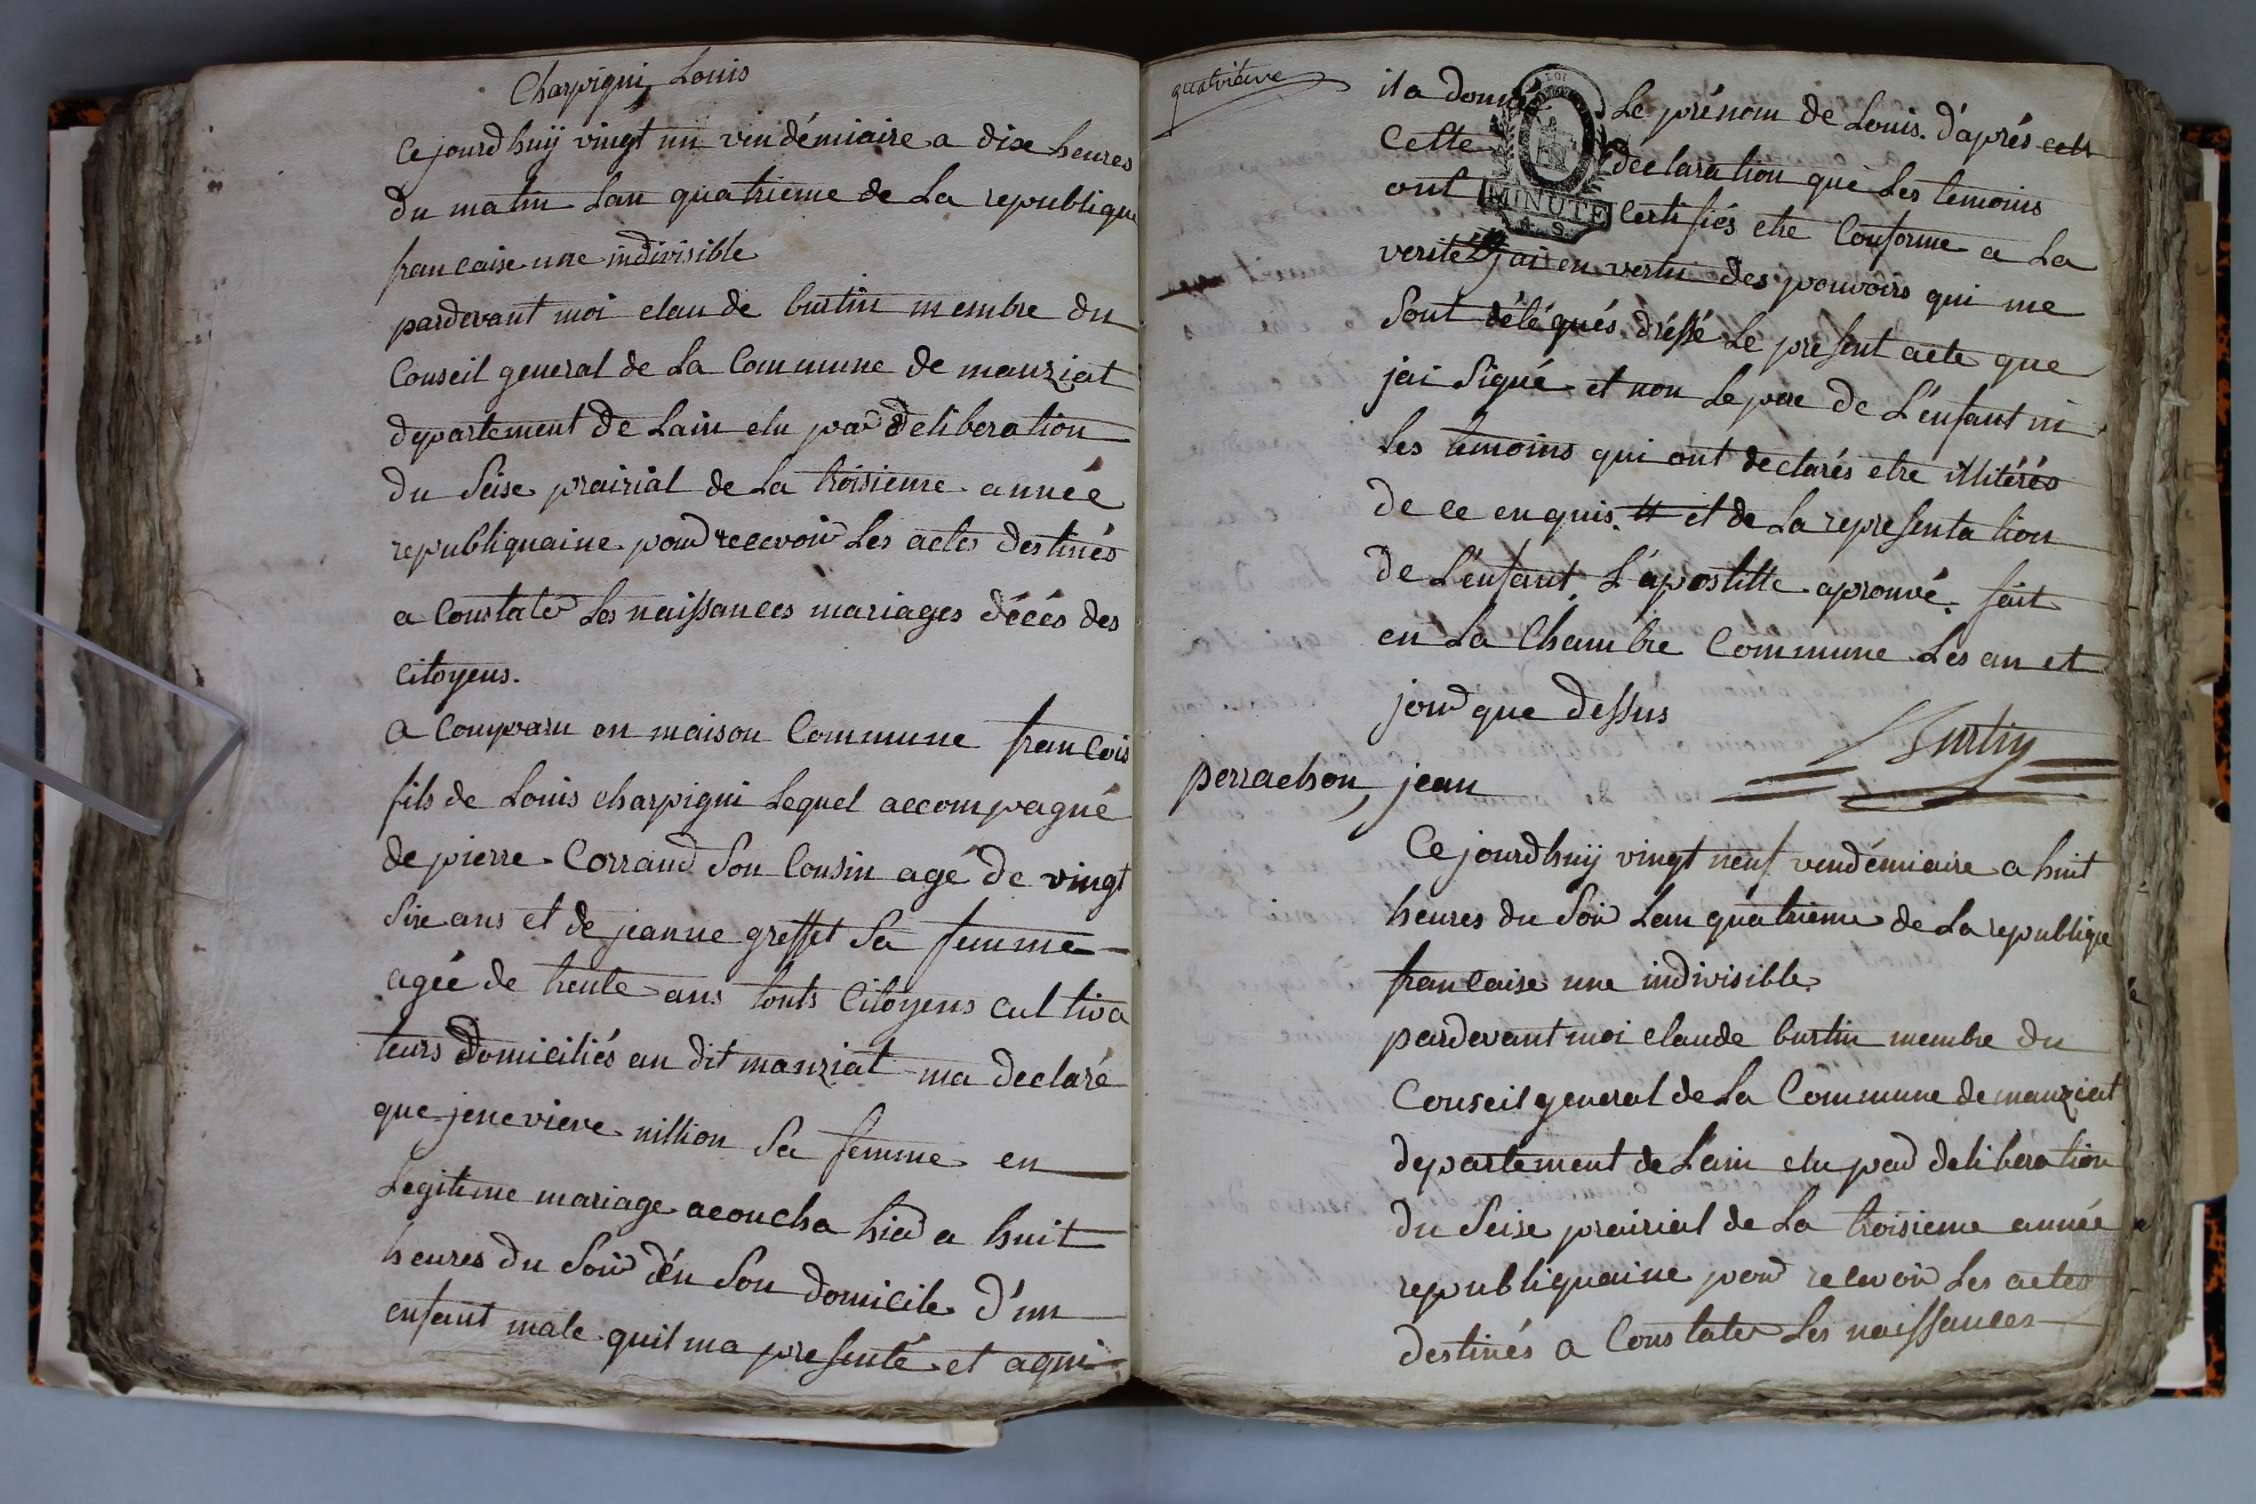 Charpigni, Louis
Ce jourdhuy vingt un vendémiaire a dix heures
du matin Lan quatrieme de La republique
francaise une indivisible
pardevant moi claude burtin membre du
Conseil general de La Commune de manziat
departement de Lain elu par deliberation
du Seise prairial de La troisieme année
republiquaine pour recevoir Les actes destinés
a Constater Les naissances mariages décés des
Citoyens.
a Comparu en maison Commune francois
fils de Louis charpigni Lequel accompagné
de pierre Corrand Son Cousin agé de vingt
Six ans et de jeanne greffet Sa femme
agée de trente ans touts Citoyens cultiva
teurs domiciliés au dit manziat ma declaré
que jenevieve nillion Sa femme en
Legitime mariage acoucha hier a huit
heures du Soir dén Son domicile d'un
enfant male quil ma presenté et aqui
quatrième
il a donné Le prénom de Louis. d'aprés cett
Cette déclaration que Les temoins
ont certifiés etre Conforme a La
MINUTE
verité jai en vertu des pouvoirs qui me
Sont délégués dréssé Le present acte que
jai Signé et non Le pere de L'enfant ni
Les temoins qui ont declarés etre illitérés
de ce enquis. # et de La representation
de L'enfant. L'apostille aprouvé. fait
en La Chambre Commune Les an et
jour que dessus
Burtin
perrachon, jean
Ce jourdhuy vingt neuf vendémiaire a huit
heures du Soir Lan quatrieme de La republique
francaise une indivisible.
pardevant moi claude burtin membre du
Conseil general de La Commune de manziat
departement de Lain elu par deliberation
du Seise prairial de La troisieme année
republiquaine pour recevoir Les actes
destinés a Constater Les naissances